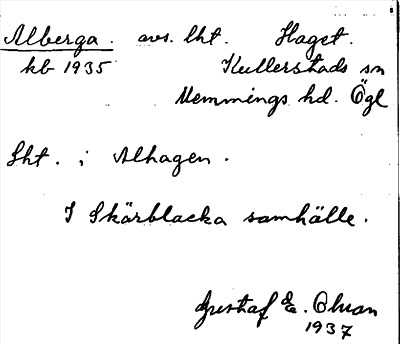 Alberga. avs. lht. Haget.
kb 1935 Kullerstads sn
Memmings hd. Ögl
Lht. i Alhagen.
I Skärblacka samhälle.
Gustaf E. Ohson
1937